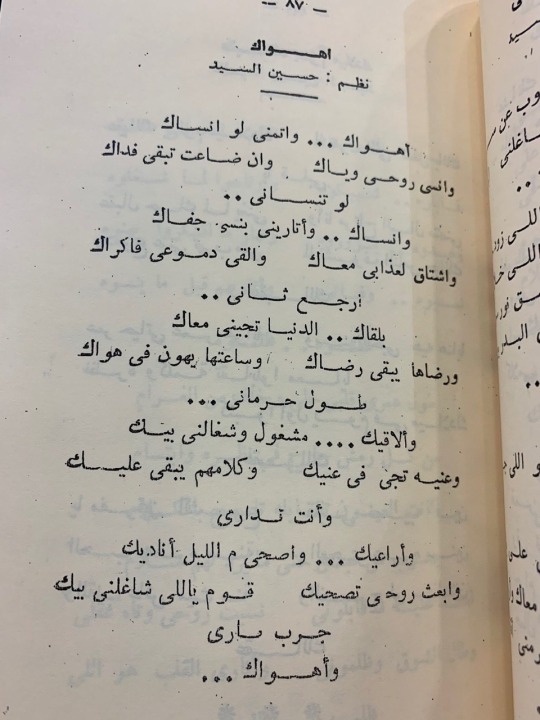 — ٨٧ —
اهـــواك
نظم : حسين السيد
أهـــواك ... واتمنى لو انساك
وانسى روحى وياك وان ضاعت تبقى فداك
لو تنسانى ..
وانساك .. وأتارينى بنسى جفاك
واشتاق لعذابى معاك والقى دموعى فاكراك
أرجع ثانى ..
بلقاك .. الدنيا تجينى معاك
ورضاها يبقى رضاك وساعتها يهون فى هواك
طـــول حرمانى ...
وألاقيك .... مشغول وشغالنى بيـك
وعنيه تجى فى عنيك وكلامهم يبقى عليـــك
وأنت تـدارى
وأراعيك ... واصحى م الليل أناديك
وابعث روحى تصحيك قـوم ياللى شاغلنى بيك
جـرب نـارى
وأهـــواك ...
وب عن
شاغلنى
اللى
اللى
البدر
معاك